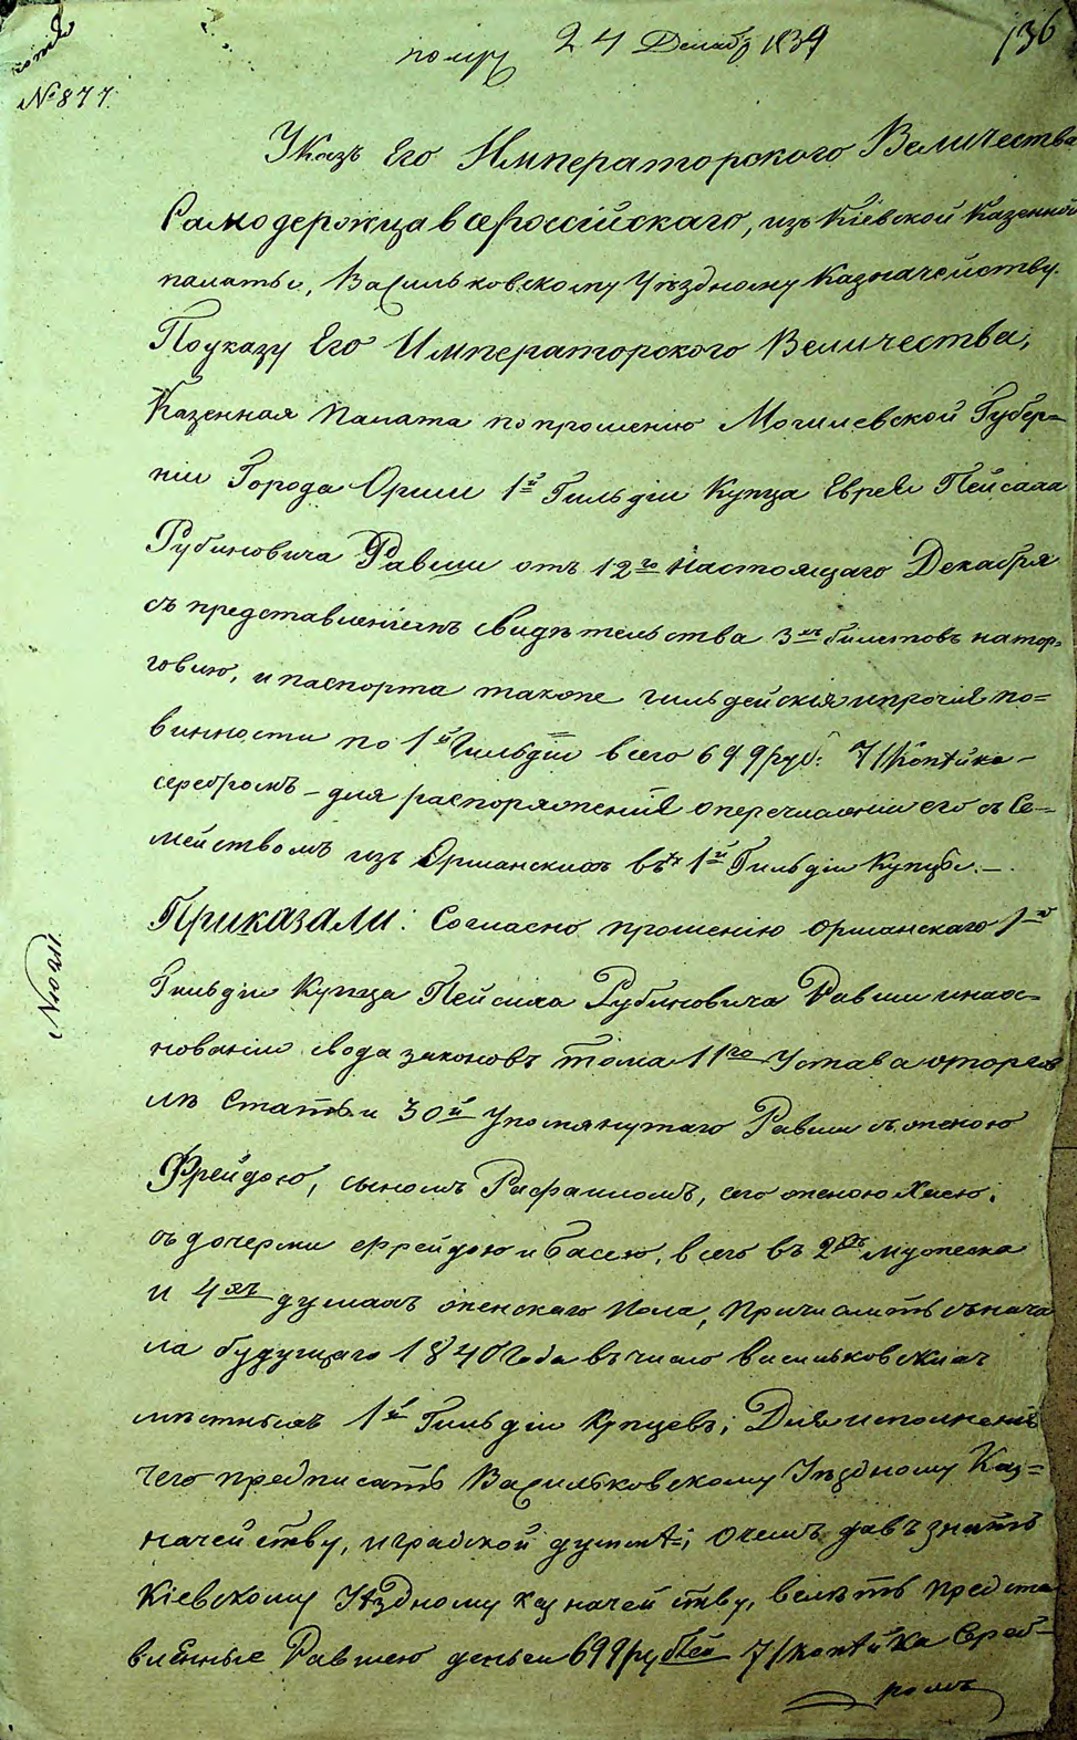 № 877.
24 Декабр 1839
136
Указъ Его Императорского Величества
Самодержца всероссійскаго, изъ Кіевской Казенной
палаты, Васильковскому Уѣздному Казначейству.
По указу Его Императорского Величества,
Казенная Палата по прошенію Могилевской Губер=
ніи Города Орши 1й Гильдіи Купца Еврея Пейсаха
Рубиновича Равши отъ 12го настоящаго Декабря
съ представленіемъ свидѣтельства 3хъ билетовъ на тор=
говлю, и паспорта также гильдейскія и прочія по=
винности по 1й Гильдіи всего 699 руб: 71 копѣйка –
серебромъ – для распоряженія о перечисленіи его съ Се=
мействомъ изъ Оршанскихъ въ 1й Гильдіи Купцы. –
Приказали: Согласно прошенію Оршанскаго 1й
Гильдіи Купца Пейсаха Рубиновича Равши и на ос=
нованіи свода законовъ тома 11го Устава о торгов
лѣ Статьи 30й Упомянутаго Равши съ женою
Фрейдою, сыномъ Рафаиломъ, его женою Хаею,
съ дочерми Фрейдою и Басею, всего въ 2хъ мужеска
и 4хъ душахъ женскаго Пола, Причислить съ нача
ла будущаго 1840 Года въ число васильковскихъ
мѣстныхъ 1й Гильдіи Купцевъ; Для исполненія
чего предписать Васильковскому Уѣздному Каз=
начейству, и градской думѣ; о чемъ давъ знать
Кіевскому Уѣздному казначейству, велѣть предста
вленные Равшею деньги 699 рублей 71 копѣйка Среб–
ромъ